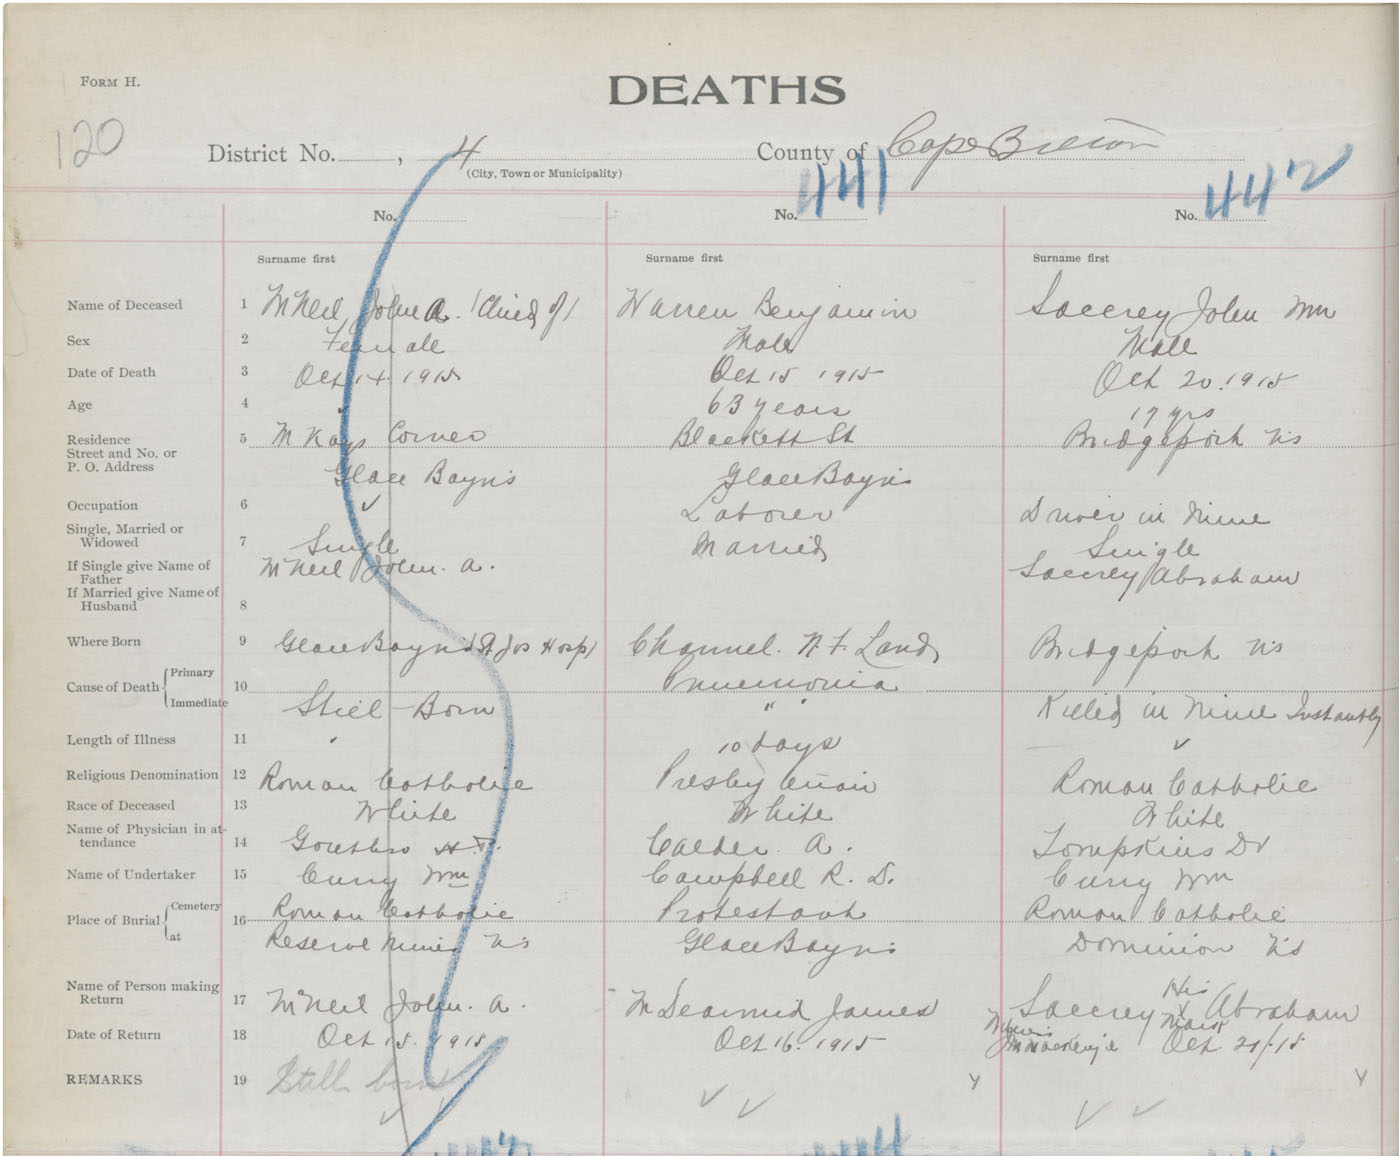 FORM H.
DEATHS
120
District No. , 4 County of Cape Breton
(City, Town or Municipality)
No. No. 441 No. 442
Surname first Surname first Surname first
Name of Deceased 1 McNeil John A. (Child of) Warren Benjamin John Wm
Sex 2 Female Male Male
Date of Death 3 Oct 14. 1915 Oct 15 1915 Oct 20. 1915
Age 4 63 years 17 yrs
Residence 5 McKays Corner Blackett St Bridgeport NS
Street and No. or
P. O. Address Glace Bay NS Glace Bay NS
Occupation 6 ✓ Laborer Driver in Mine
Single, Married or
Widowed 7 Single Married Single
If Single give Name of
Father McNeil John. A. Abraham
If Married give Name of
Husband 8
Where Born 9 Glace Bay NS (St Jos Hosp) Channel. N. F. Land Bridgeport NS
Cause of Death { Primary 10 Pnuemonia
Immediate Still-Born " " Killed in Mine Instantly
Length of Illness 11 10 days ✓
Religious Denomination 12 Roman Catholic Presbyterian Roman Catholic
Race of Deceased 13 White White White
Name of Physician in at-
tendance 14 Gouthro H. F. Calder. A. Tompkins Dr
Name of Undertaker 15 Curry Wm Campbell R. D. Curry Wm
Place of Burial { Cemetery 16 Roman Catholic Protestant Roman Catholic
at Reserve Mines NS Glace Bay NS Dominion NS
Name of Person making
Return 17 McNeil John. A. McDearmid James His X Mark Abraham
Date of Return 18 Oct 15. 1915 Oct 16. 1915 Witness Oct 21/15
REMARKS 19 Still born